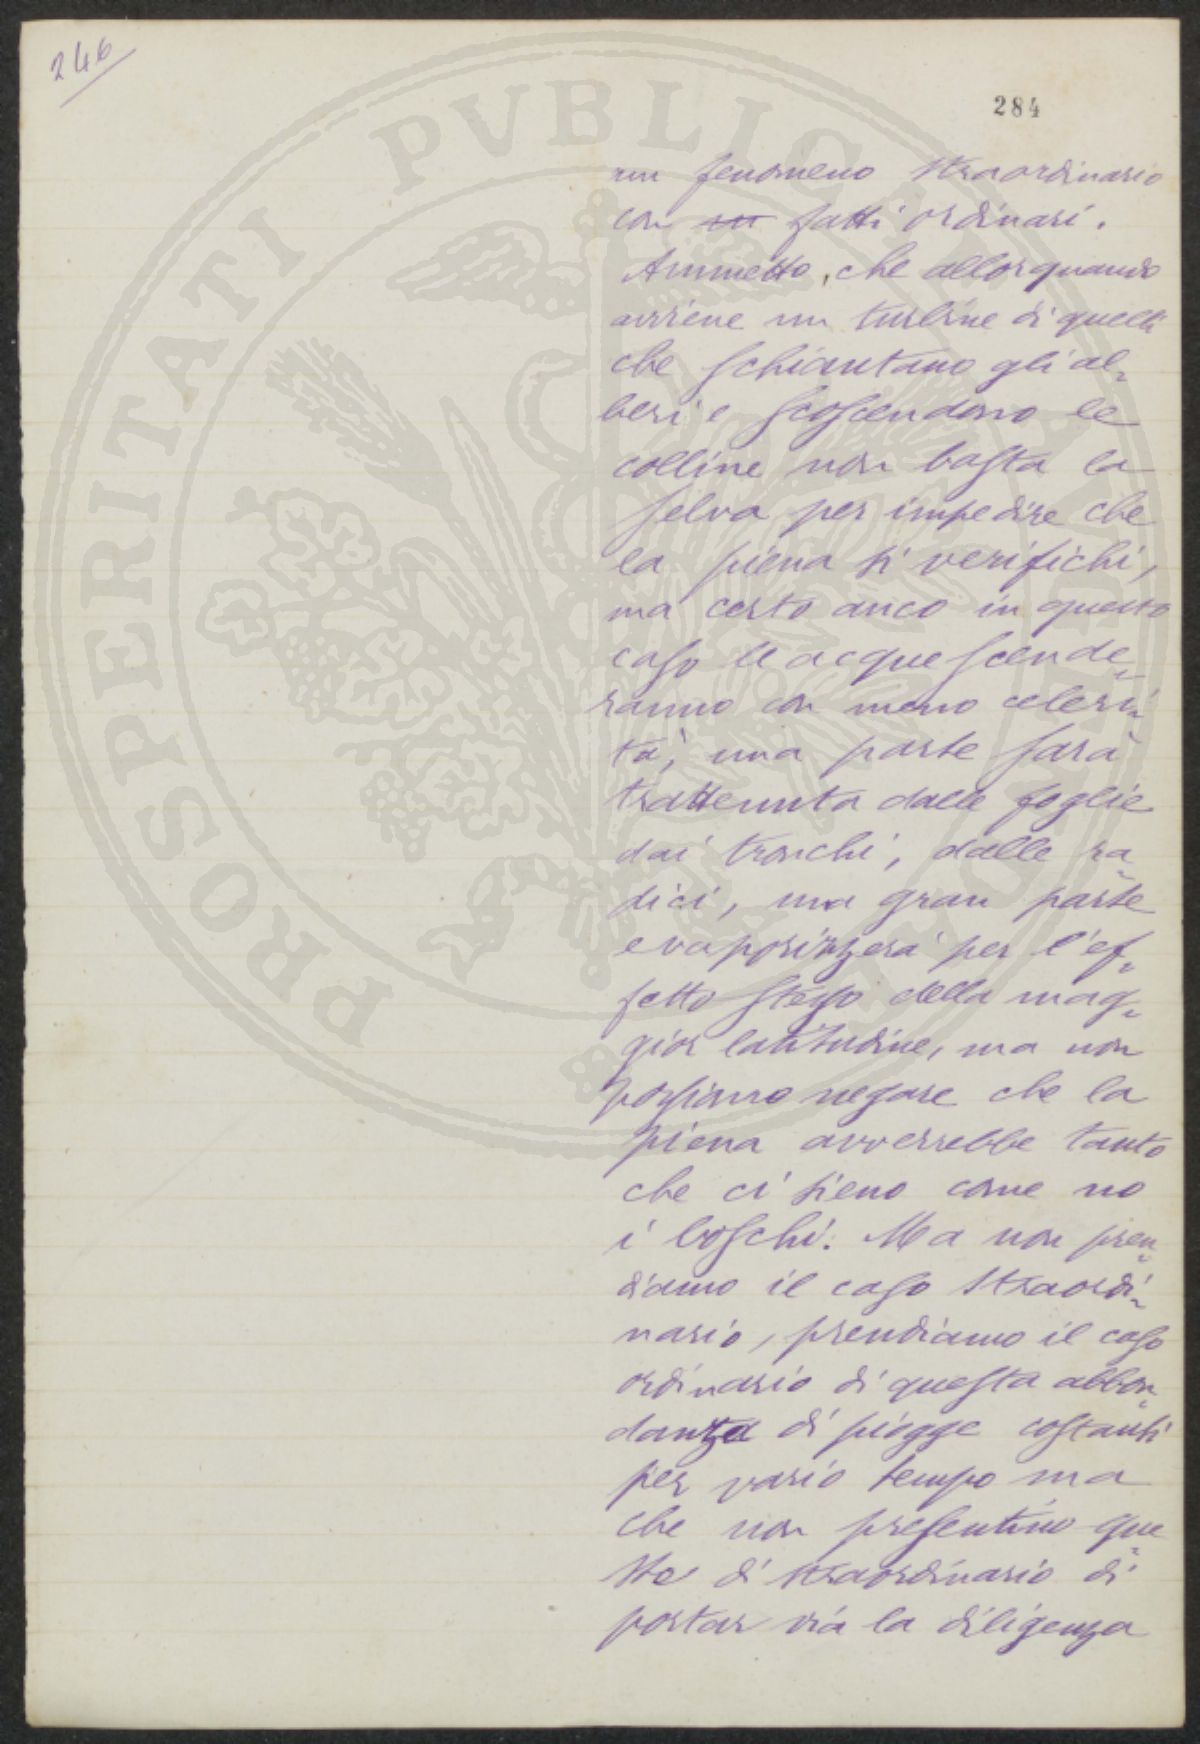 246
284
un fenomeno straordinario
con su fatti ordinari.
Ammetto, che allorquando
avviene un turbine di quelli
che schiantano gli al=
beri e scoscendono le
colline non basta la
selva per impedire che
la piena si verifichi,
ma certo anco in questo
caso le acque scende=
ranno con meno celeri=
tà, una parte sarà
trattenuta dalle foglie
dai tronchi, dalle ra=
dici, una gran parte
evaporizzerà per l'ef=
fetto stesso della mag=
gior latitudine, ma non
possiamo negare che la
piena avverrebbe tanto
che ci sieno come no
i boschi. Ma non pren=
diamo il caso straordi=
nario, prendiamo il caso
ordinario di questa abbon=
danza di piogge costanti
per vario tempo ma
che non presentino que=
sto di straordinario di
portar via la diligenza
PROSPERITATI PVBLICAE